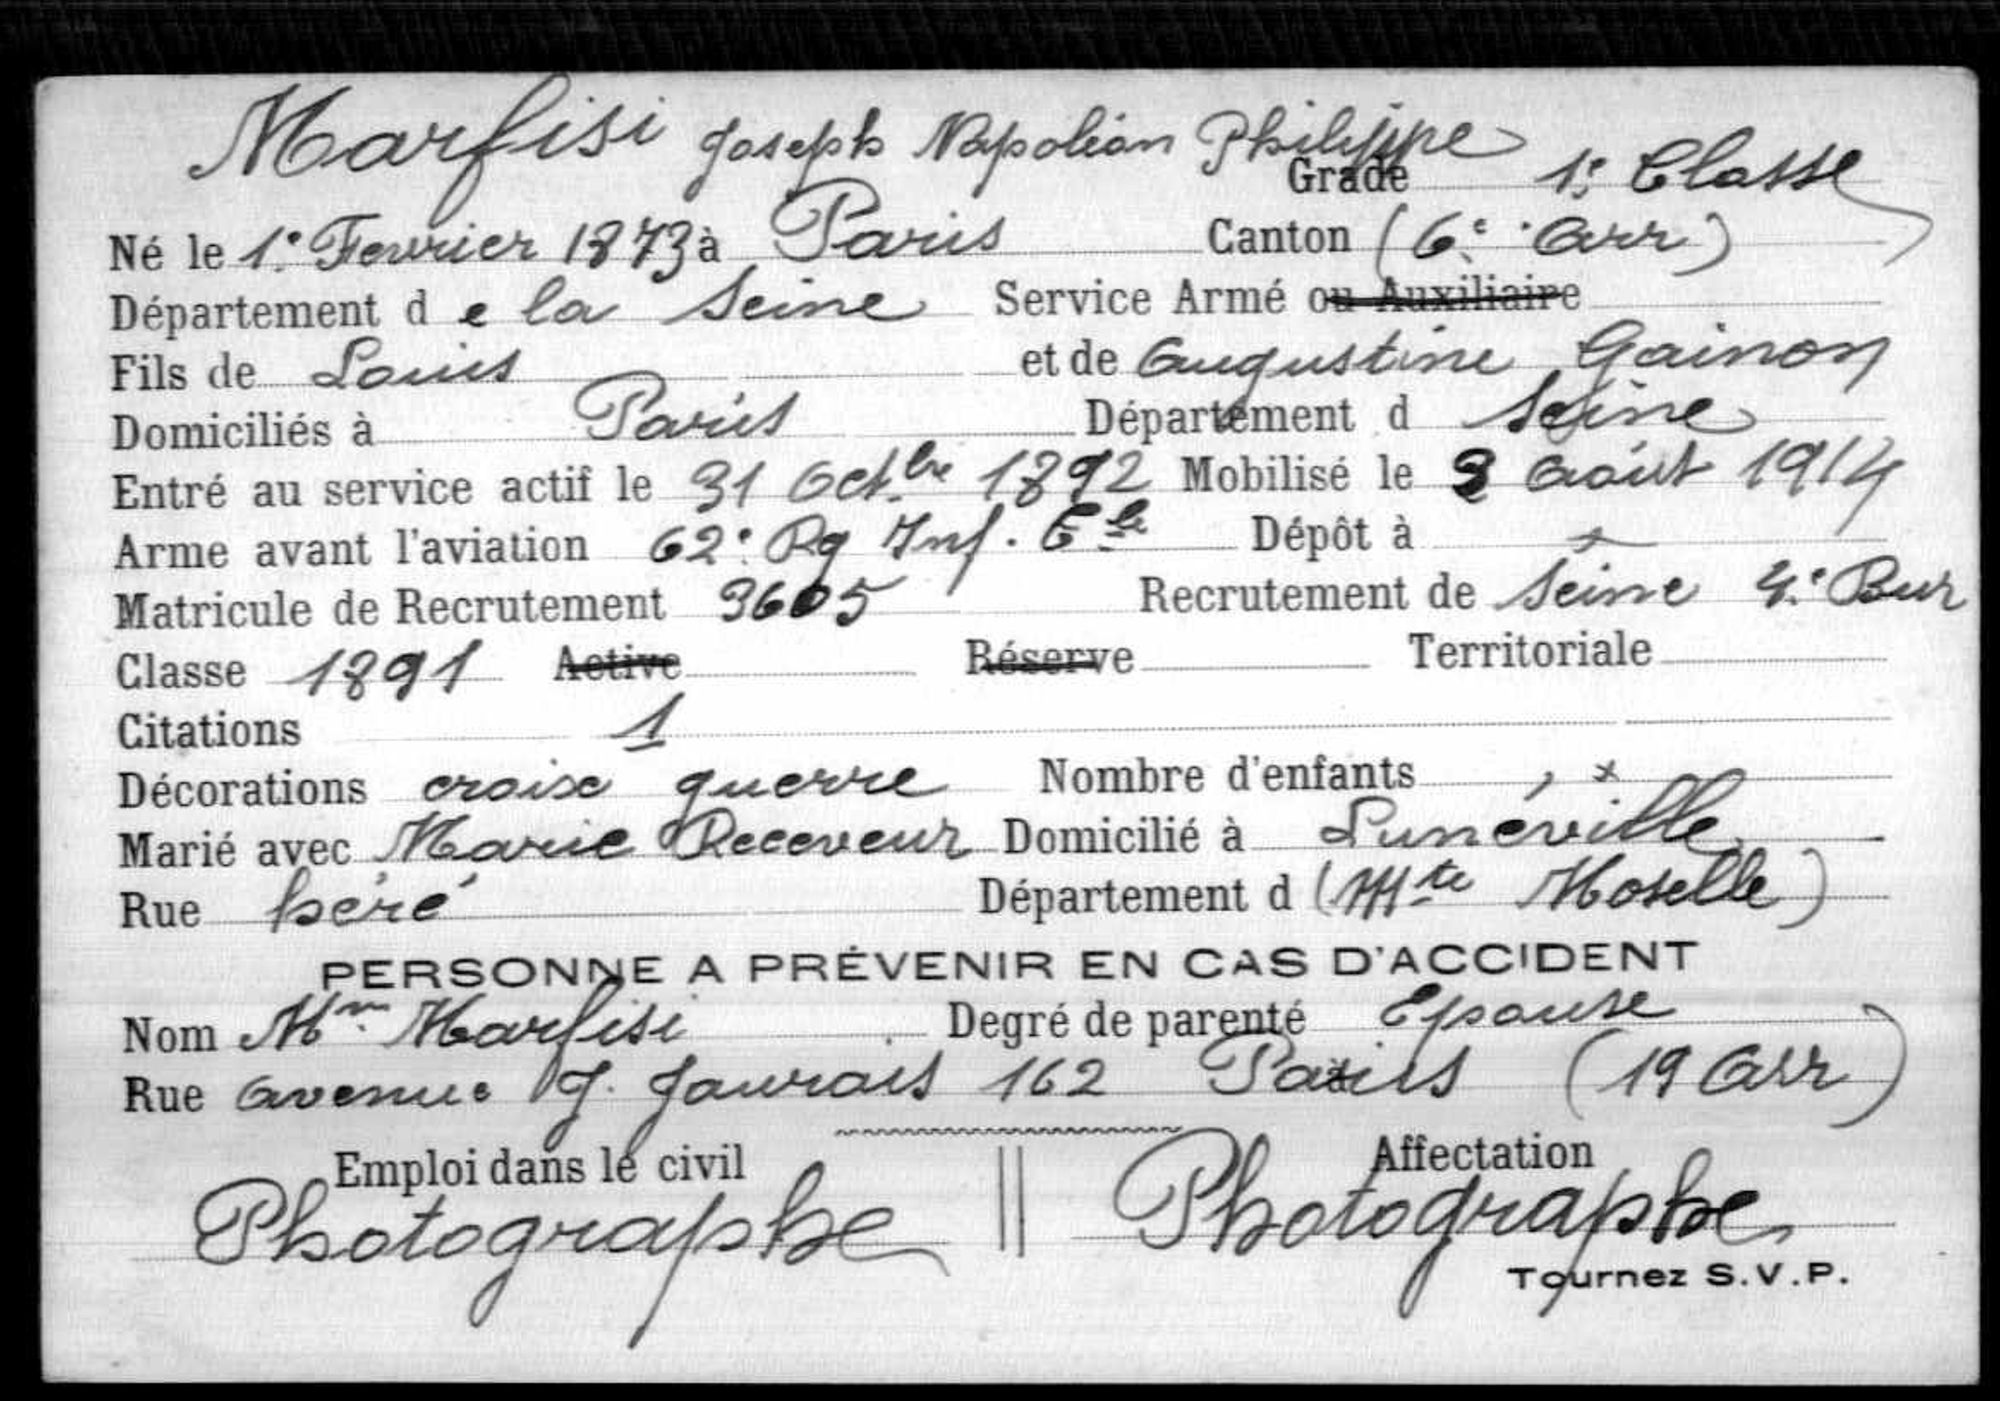 Marfisi Joseph Napoléon Philippe
Grade 1e Classe
Né le 1e Fevrier 1873 à Paris Canton (6e Arr)
Département de la Seine Service Armé ou Auxiliaire
Fils de Louis et de Augustine Gainon
Domiciliés à Paris Département d Seine
Entré au service actif le 31 Octbre 1892 Mobilisé le 3 Août 1914
Arme avant l'aviation 62e Rg Inf. Dépôt à
Matricule de Recrutement 3605 Recrutement de Seine 4e Bur
Classe 1891 Active Réserve Territoriale
Citations 1
Décorations croix guerre Nombre d'enfants x
Marié avec Marie Receveur Domicilié à Lunéville
Rue héré Département d (Mthe Moselle)
PERSONNE A PRÉVENIR EN CAS D'ACCIDENT
Nom Mm Marfisi Degré de parenté Epouse
Rue Avenue J. Jaurais 162 Paris (19 Arr)
Emploi dans le civil Affectation
Photographe Photographe
Tournez S.V.P.